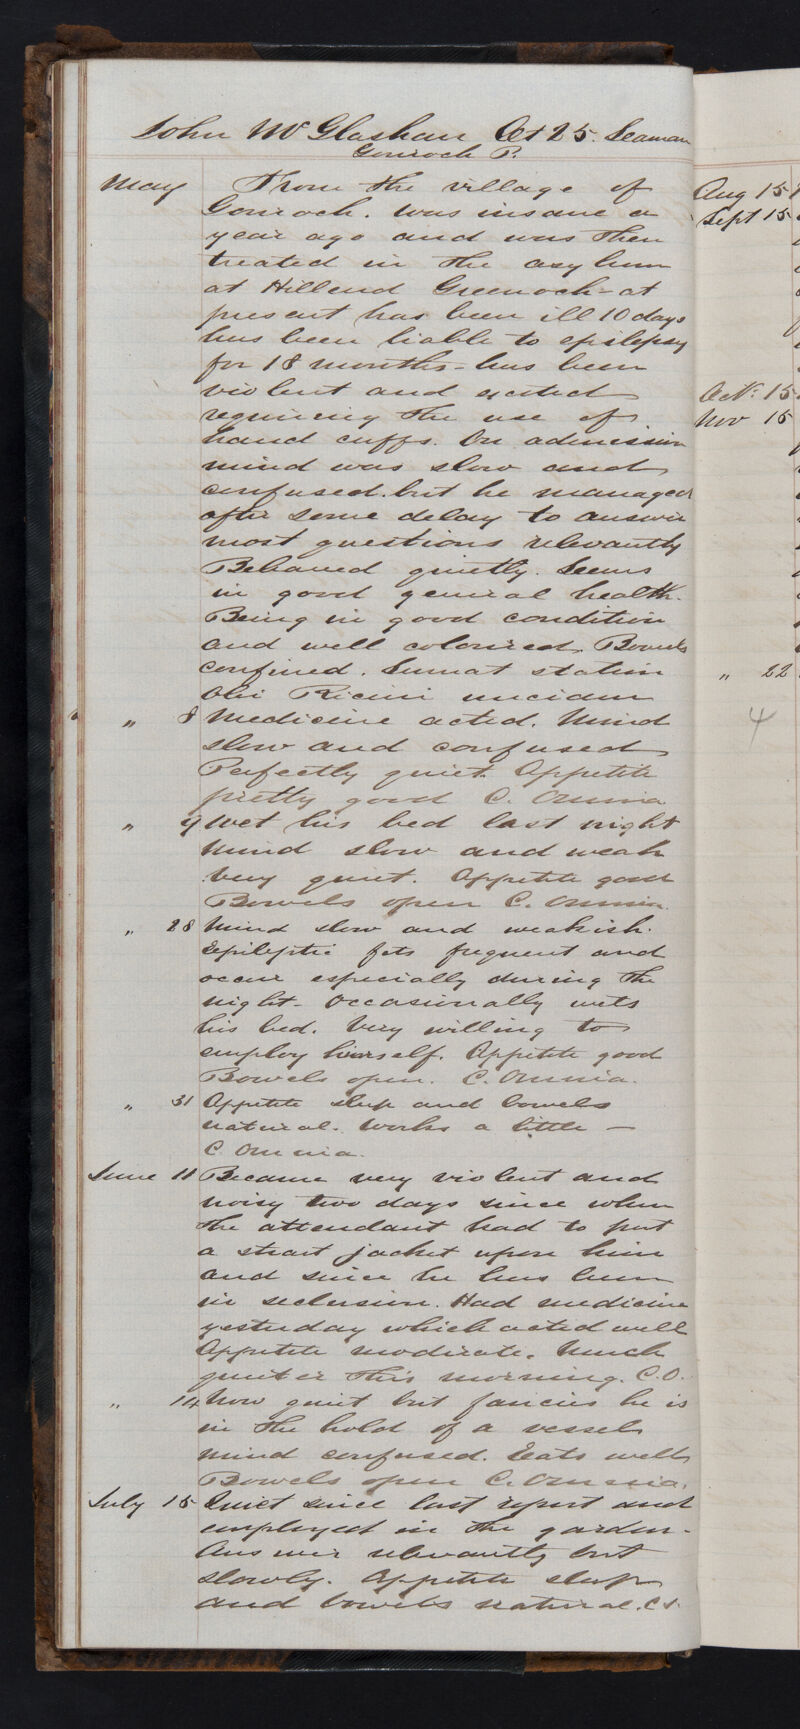 John McGlashan Æt 25. Seaman
Gourock P.
May From the village of
Gourock. Was insane a
year ago and was then
treated in the asylum
at Hillend Greenock - at
present has been ill 10 days
has been liable to epilepsy
for 18 months - has been
violent and excited
requiring the use of
hand cuffs. On admission
mind was slow and
confused. but he managed
after some delay to answer
most questions relevantly
Behaved quietly. Seems
in good general health.
Being in good condition
and well coloured. Bowels
confined. Sumat statim
Olei Ricini unciam
" 8 Medicine acted. Mind
slow and confused
Perfectly quiet. Appetite
pretty good C. Omnia
" 9 Wet his bed last night
Mind slow and weak
very quiet. Appetite good
Bowels open C. Omnia.
" 28 Mind slow and weakish.
Epileptic fits frequent and
occur especially during the
night - Occasionally wets
his bed. Very willing to
employ himself. Appetite good
Bowels open. C. Omnia.
" 31 Appetite sleep and bowels
natural. Works a little -
C. Omnia.
June 11 Became very violent and
noisy two days since when
the attendant had to put
a strait jacket upon him
and since he has been
in seclusion. Had medicine
yesterday which acted well
Appetite moderate. Much
quieter this morning. C.O.
" 14 Now quiet but fancies he is
in the hold of a vessel
mind confused. Eats well
Bowels open C. Omnia.
July 15 Quiet since last report and
employed in the garden.
Answers relevantly but
slowly. Appetite sleep
and bowels natural.
Aug 15
Sept 15
Oct: 15
Nov 15
" 22
4